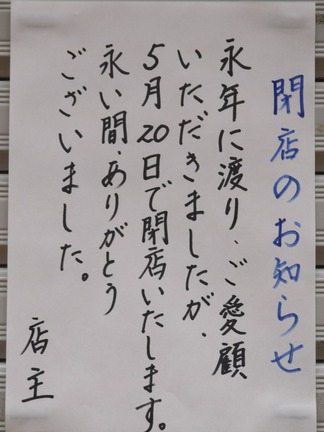 閉店のお知らせ
永年に渡り、ご愛顧
いただきましたが、
5月20日で閉店いたします。
永い間、ありがとう
ございました。
店主